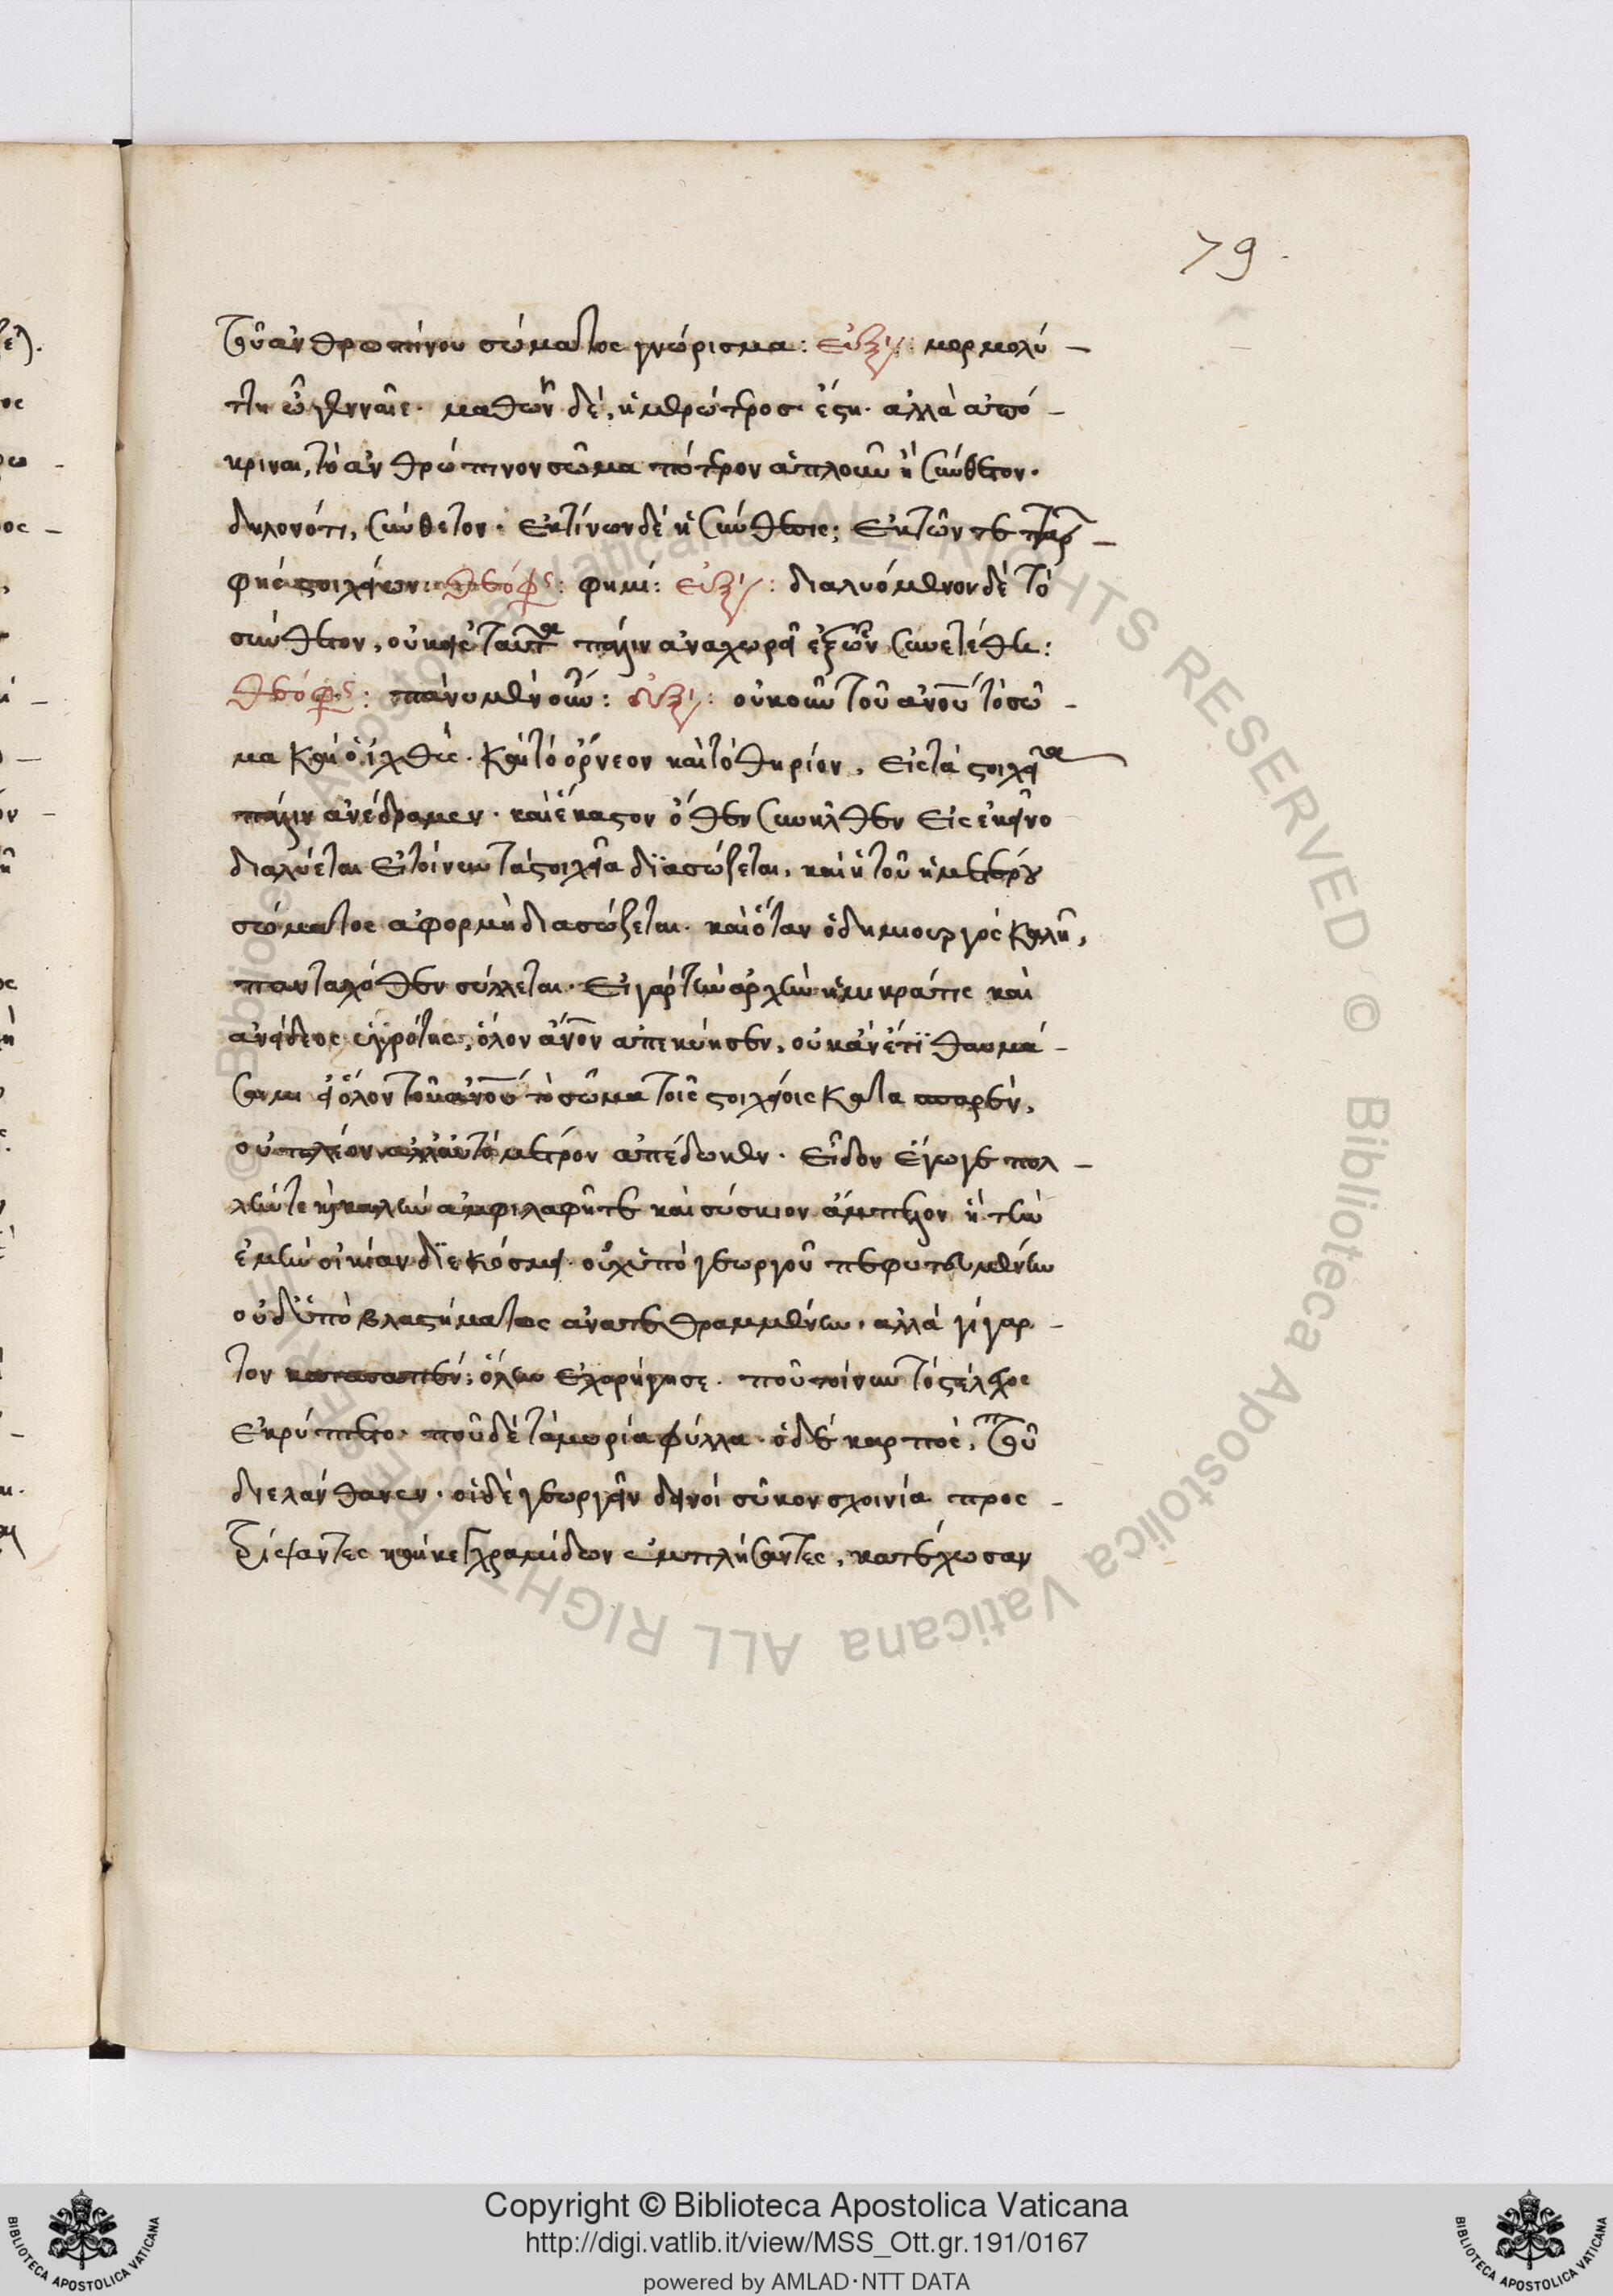 79.
τοῦ ἀνθρωπίνου σώματος γνώρισμα: εὐξί: μορμολύ-
τη ὦ γενναῖε. μαθὼν δὲ, ἡμέτερος ἔση. ἀλλὰ ἀπό-
κριναι, τὸ ἀνθρώπινον σῶμα πότερον ἁπλοῦν ἢ σύνθετον.
δηλονότι, σύνθετον. ἐκ τίνων δὲ ἡ σύνθεσις; ἐκ τῶν τεττάρ-
φης στοιχείων: Θεόφρ: φημί: εὐξί: διαλυόμενον δὲ τὸ
σύνθετον, οὐκ εἰς ταῦτα πάλιν ἀναχωρεῖ ἐξ ὧν συνετέθη:
Θεόφρ: πάνυ μὲν οὖν: εὐξί: οὐκοῦν τοῦ ἀνου τὸ σῶ-
μα καὶ ὁ ἰχθὺς. καὶ τὸ ὄρνεον καὶ τὸ θηρίον, εἰς τὰ στοιχεῖα
πάλιν ἀνέδραμεν. καὶ ἕκαστον ὅθεν συνῆλθεν εἰς ἐκεῖνο
διαλύεται εἰ τοίνυν τὰ στοιχεῖα διασώζεται, καὶ ἡ τοῦ ἡμετέρου
σώματος ἀφορμὴ διασώζεται. καὶ ὅταν ὁ δημιουργὸς καλῆ,
πανταχόθεν σύλλεται. εἰ γὰρ τὴν ἀρχὴν ἡ μικρά τις καὶ
ἀνείδεος ὑγρότης, ὅλον ἄνον ἀπεκύησεν, οὐκ ἂν ἔτι θαυμά-
σαιμι εἰ ὅλον τοῦ ἀνου τὸ σῶμα τοῖς στοιχείοις κατασπαρὲν,
οὐ πλέον ἀλλ' αὐτὸ μέτρον ἀπέδωκεν. εἶδον ἔγωγε πολ-
λήν τε καὶ καλὴν ἀμφιλαφῆ τε καὶ σύσκιον ἄμπελον ἣ τὴν
ἐμὴν οἰκίαν διεκόσμει. οὐχ ὑπὸ γεωργοῦ πεφυτευμένην
οὐδ' ὑπὸ βλαστήματος ἀνατεθραμμένην, ἀλλὰ γίγαρ-
τον κατασαπὲν, ὅλην ἐχορήγησε. ποῦ τοίνυν τὸ στέλεχος
ἐκρύπτετο. ποῦ δὲ τὰ μυρία φύλλα. ὁ δὲ καρπὸς, ποῦ
διελάνθανεν. οἱ δὲ γεωργεῖν δεινοὶ σῦκον σχοινία προς-
τρίψαντες καὶ κεγχραμίδων ἐμπλήσαντες, κατέχωσαν
Copyright © Biblioteca Apostolica Vaticana
http://digi.vatlib.it/view/MSS_Ott.gr.191/0167
powered by AMLAD·NTT DATA